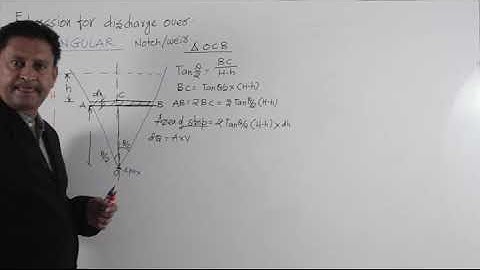 Ex ression for discharge over
NGULAR Notch/weir
Δ OCB
Tan θ/2 = BC / H-h
BC = Tan θ/2 × (H-h)
AB = 2 BC = 2 Tan θ/2 (H-h)
Area of strip = 2 Tan θ/2 (H-h) × dh
dQ = A×V
h
dh
A
C
B
θ/2
θ/2
O
apex